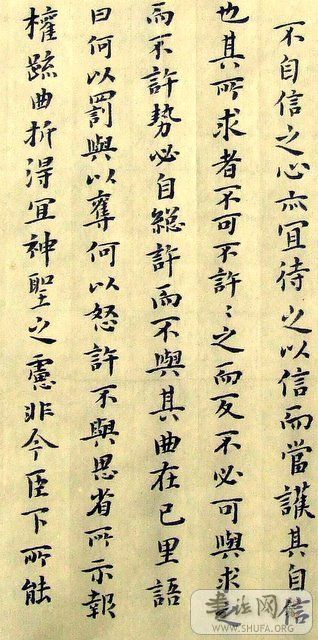 不自信之心亦宜待之以信而當護其自信
也其所求者不可不許〻之而反不必可與求之
而不許勢必自絕許而不與其曲在己里語
曰何以罰與以奪何以怒許不與思省所示報
權疏曲折得宜神聖之慮非今臣下所能
書法网
WWW.SHUFA.ORG